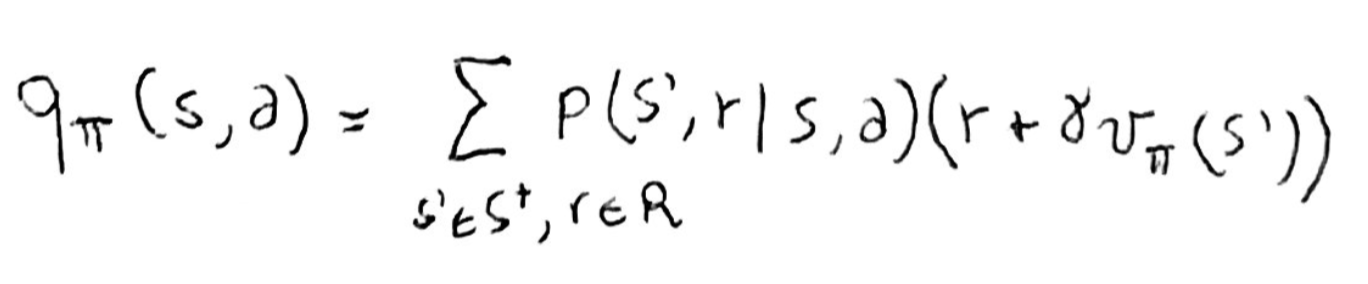 q_π(s,a) = ∑_{s'∈S⁺, r∈R} p(s',r|s,a)(r + γv_π(s'))